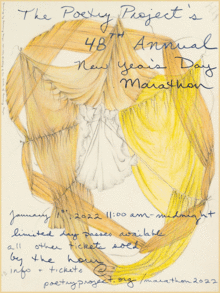 The Poetry Project's
48TH Annual
New Year's Day
Marathon
January 1st, 2022 11:00 am-midnight
limited day passes available
all other tickets sold
by the hour
info + tickets @
poetryproject.org/marathon2022